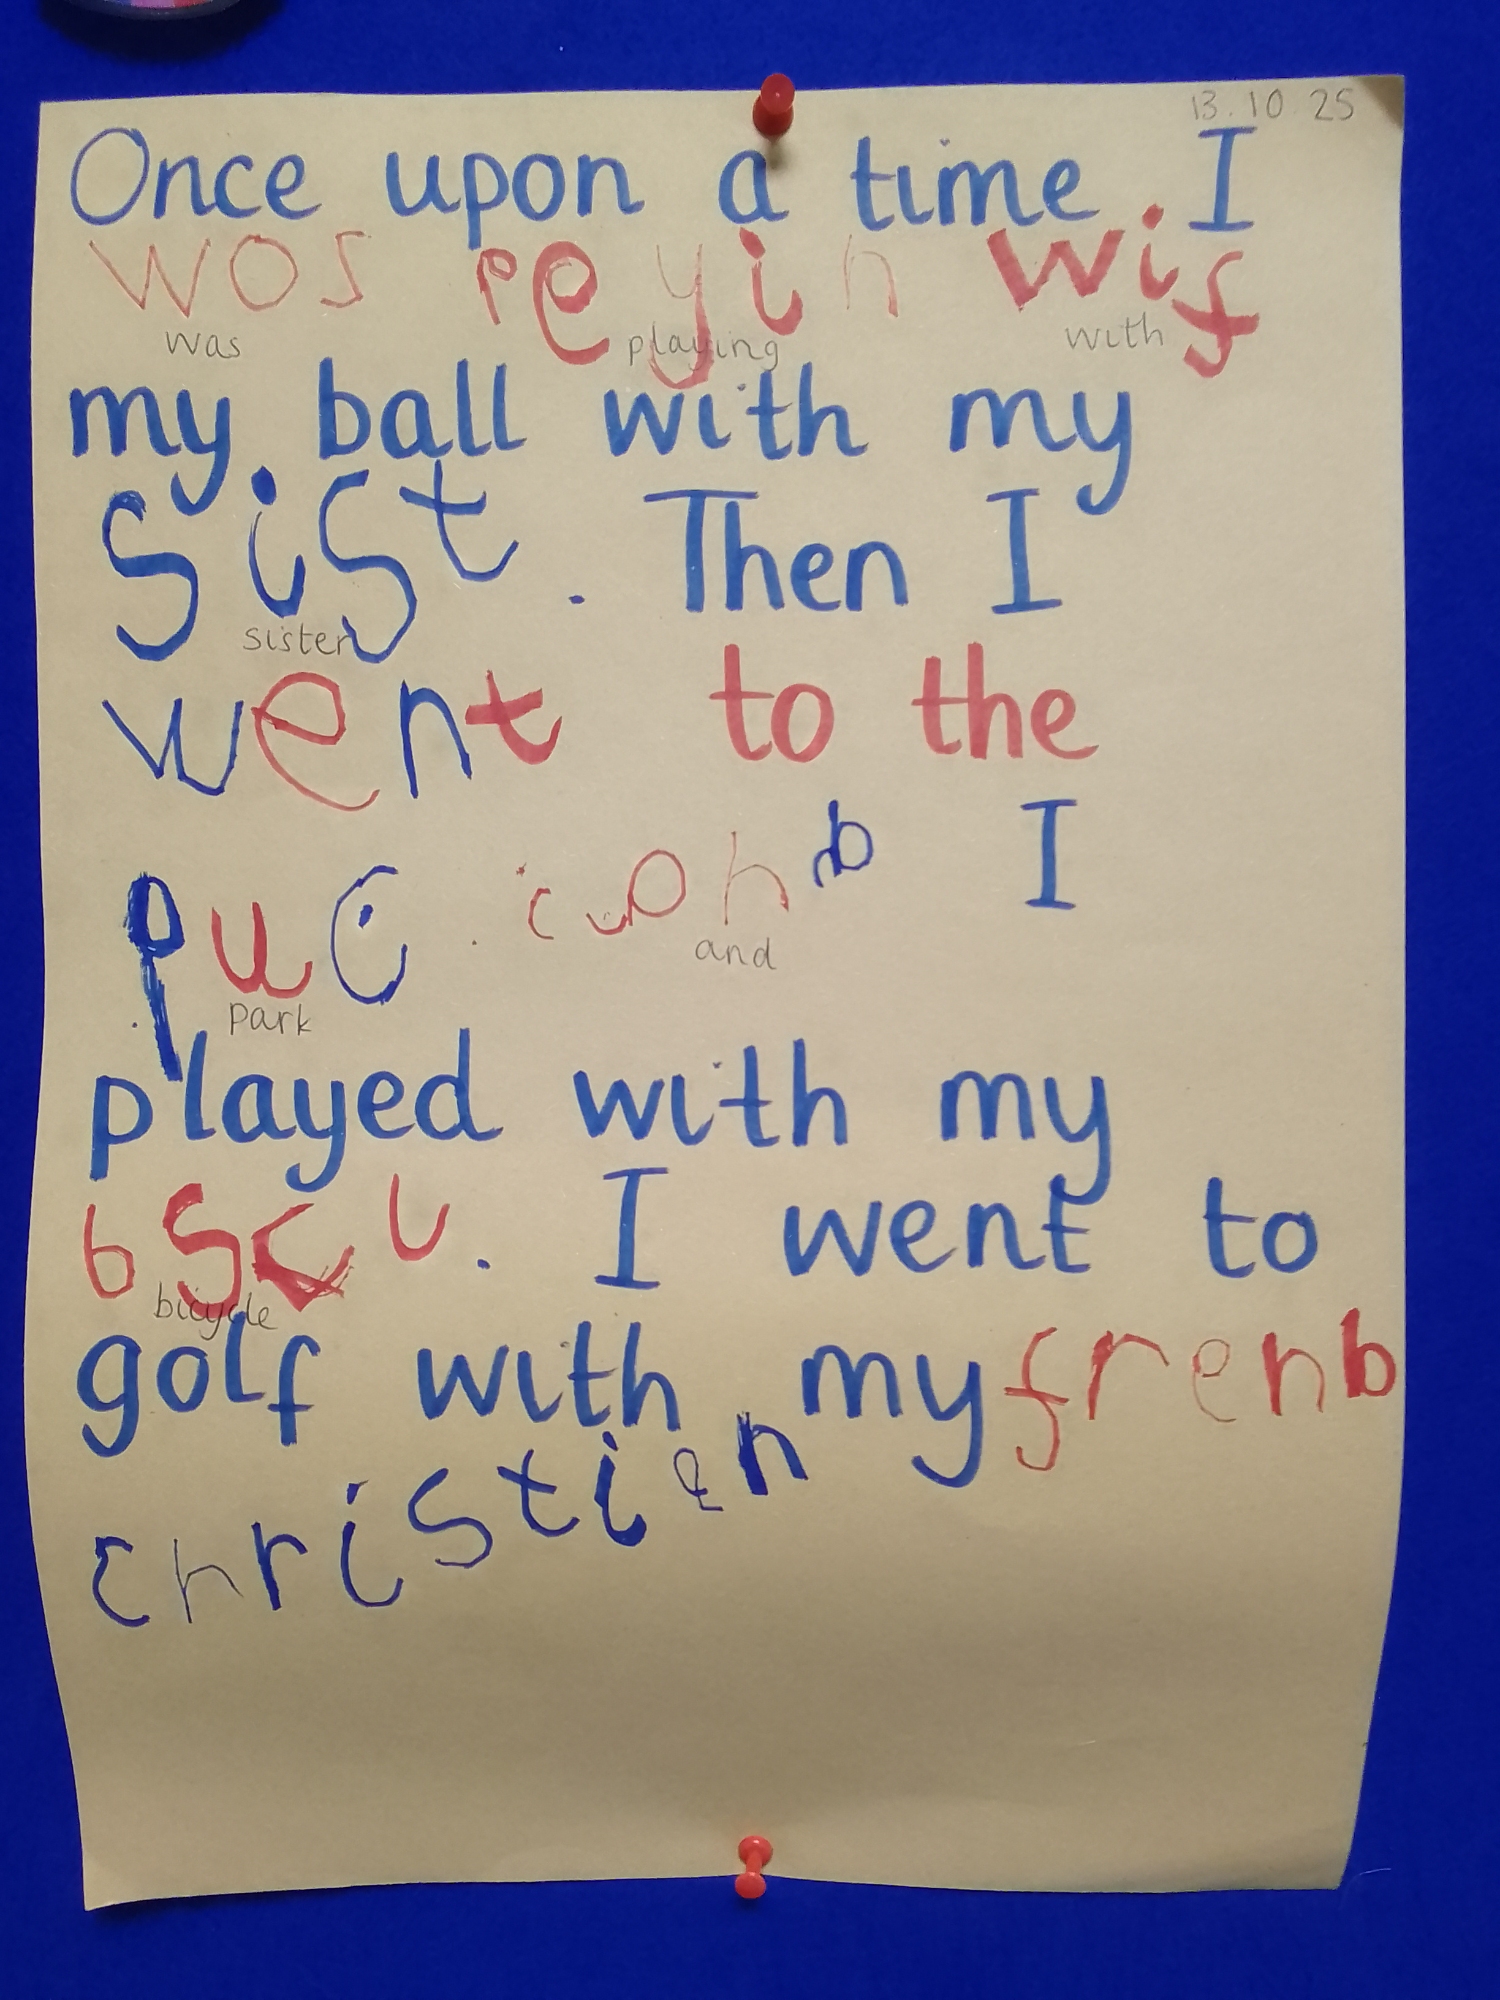 13.10.25
Once upon a time I
wos peyin wif
was playing with
my ball with my
sist. Then I
sister
went to the
puc. anb I
park and
played with my
bscu. I went to
bicycle
golf with my frenb
christian